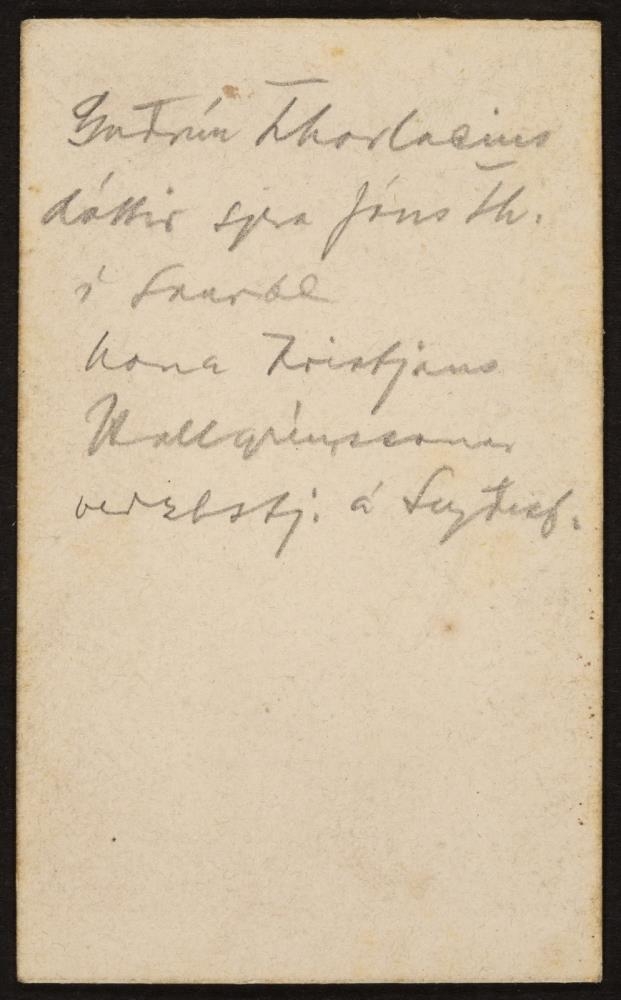 Guðrún Thorlacius
dóttir sjera Jóns Th.
í Saurbæ
kona Kristjáns
Hallgrímssonar
verzlstj. á Seyðisf.